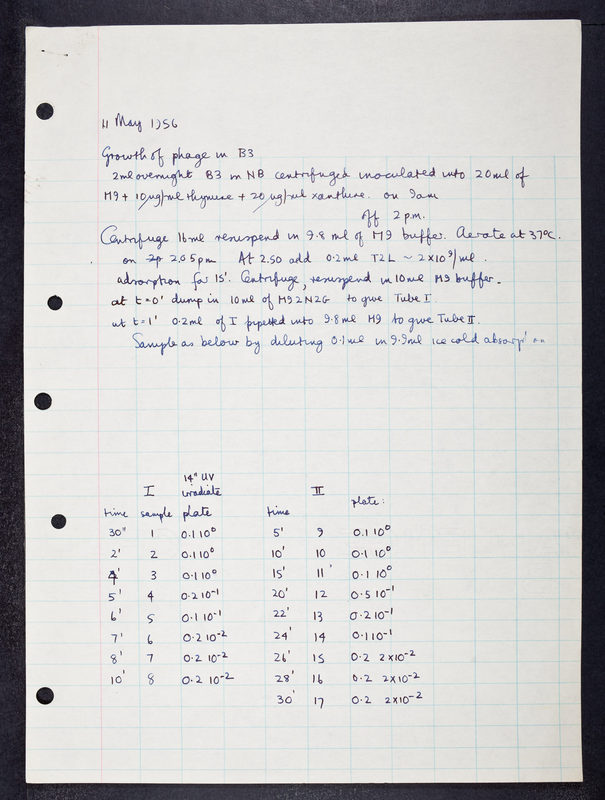 11 May 1956
Growth of phage in B3
2ml overnight B3 in NB centrifuged inoculated into 20ml of
M9 + 10 µg/ml thymine + 20 µg/ml xanthine. on 9am
off 2 p.m.
Centrifuge 16ml resuspend in 9.8 ml of M9 buffer. Aerate at 37°C.
on 2.05pm At 2.50 add 0.2ml T2L ~ 2×10⁹/ml.
adsorption for 15'. Centrifuge, resuspend in 10ml M9 buffer.
at t=0' dump in 10ml of M92N2G to give Tube I.
at t=1' 0.2ml of I pipetted into 9.8ml M9 to give Tube II.
Sample as below by diluting 0.1ml in 9.9ml ice cold
14" UV
I irradiate II
plate:
time sample plate time
30" 1 0.1 10⁰ 5' 9 0.1 10⁰
2' 2 0.1 10⁰ 10' 10 0.1 10⁰
4' 3 0.1 10⁰ 15' 11 0.1 10⁰
5' 4 0.2 10⁻¹ 20' 12 0.5 10⁻¹
6' 5 0.1 10⁻¹ 22' 13 0.2 10⁻¹
7' 6 0.2 10⁻² 24' 14 0.1 10⁻¹
8' 7 0.2 10⁻² 26' 15 0.2 2×10⁻²
10' 8 0.2 10⁻² 28' 16 0.2 2×10⁻²
30' 17 0.2 2×10⁻²